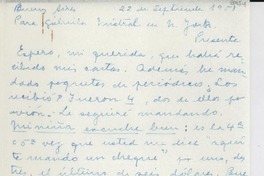 Buenos Aires 22 de Septiembre 195
Para Gabriela Mistral en N. York
Presente
Espero, mi querida, que habrá re-
cibido mis cartas. Además he man-
dado paquetes de periódicos. ¿Los
recibió? Fueron 4, dos de ellos por
avión. Le seguiré mandando.
escuche bien: es la 4ª
o 5ª vez que usted me dice "aquí
te mando un cheque" por uno, dos,
tres, el último de seis dólares. Que